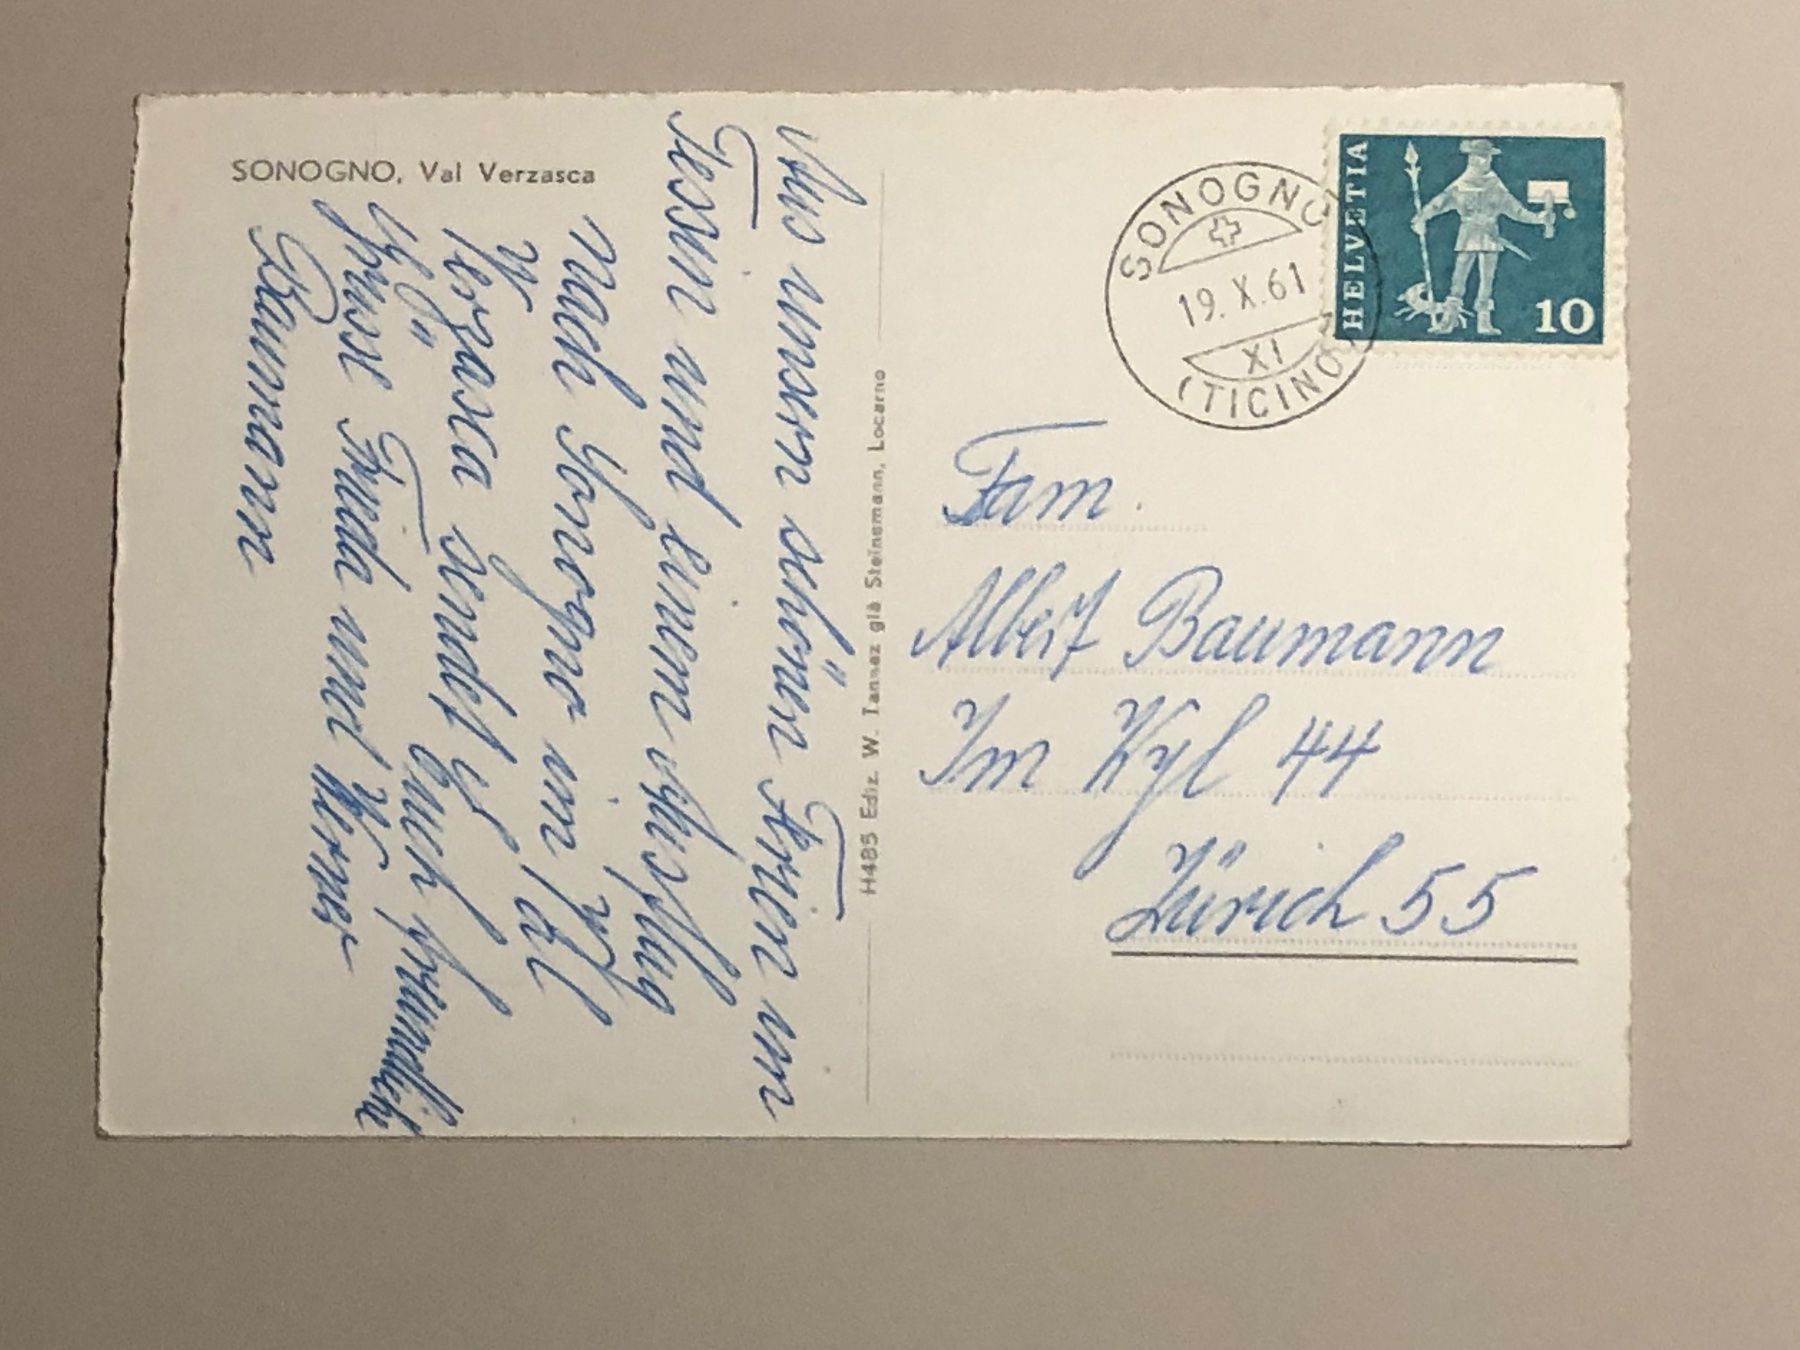 SONOGNO, Val Verzasca
Aus unsern schönen Ferien im
Tessin und einem Ausflug
nach Sonogno im Val
Verzasca sendet Euch freundliche
Grüsse Frieda und Werner
Baumann
H485 Ediz. W. Tannaz già Steinemann, Locarno
SONOGNO
19.X.61
XI
(TICINO)
HELVETIA
10
Fam.
Albert Baumann
Im Wyl 44
Zürich 55